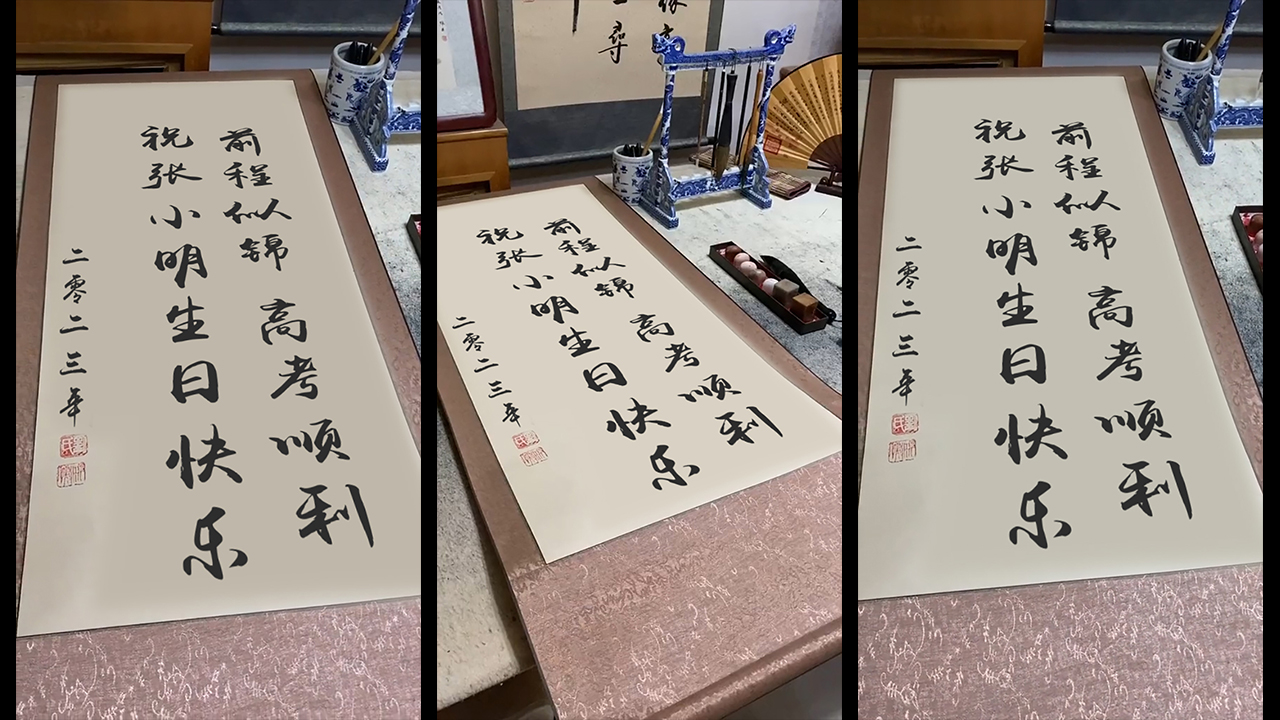 前程似锦 高考顺利
祝张小明生日快乐
二零二三年
前程似锦 高考顺利
祝张小明生日快乐
二零二三年
前程似锦 高考顺利
祝张小明生日快乐
二零二三年